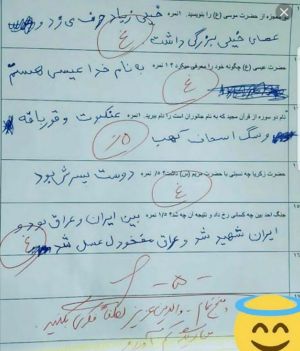 معجزه از حضرت موسی (ع) را بنویسید. ۱ نمره خیلی زیاد حرف می زد و
عصای خیلی بزرگی داشت غ
حضرت عیسی (ع) چگونه خود را معرفی میکرد؟ ۱ نمره به نام خدا عیسی هستم
غ
نام دو سوره از قرآن مجید که به نام جانوران است را نام ببرید. ۱ نمره عنکبوت و قورباغه
و سگ اصحاب کهف
حضرت زکریا چه نسبتی با حضرت مریم (س) داشت؟ ۰/۵ نمره دوست پسرش بود
غ
جنگ احد بین چه کسانی رخ داد و نتیجه آن چه شد؟ ۱/۵ نمره بین ایران و عراق بود و
ایران شهید شد و عراق مفقودل عسل شد غ
والدین عزیز لطفا فکری بکنید